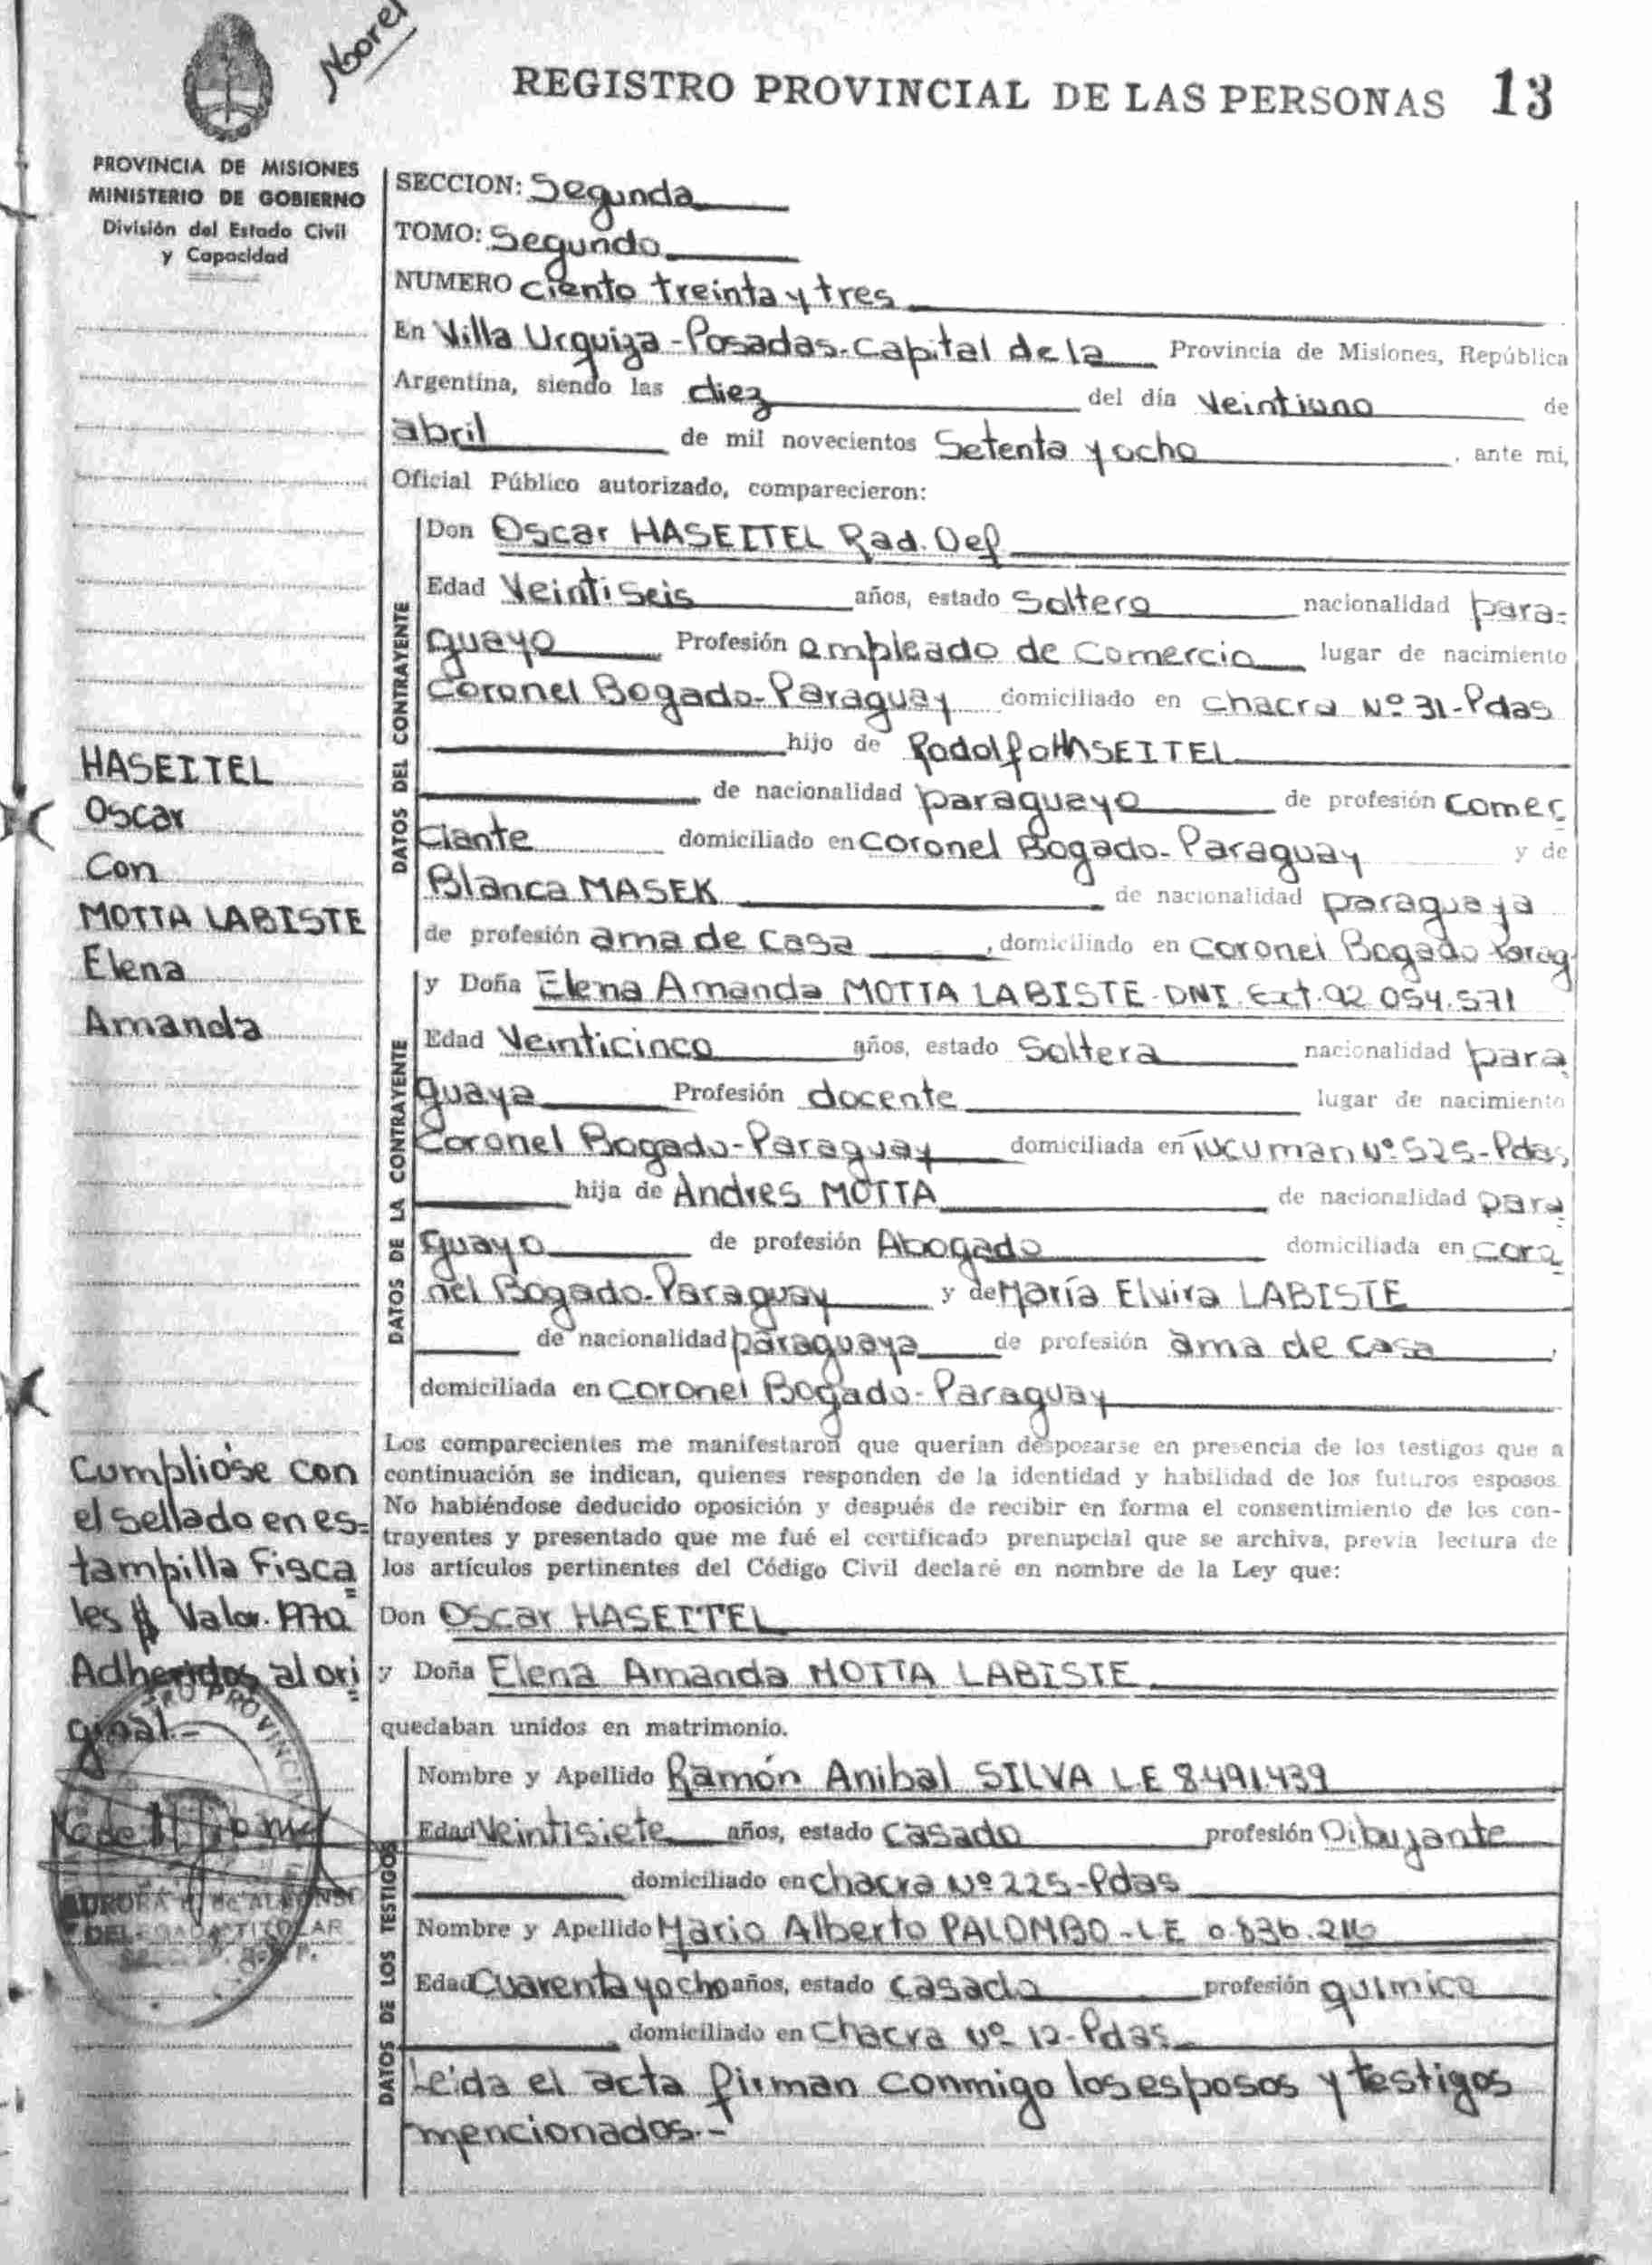 Norel
REGISTRO PROVINCIAL DE LAS PERSONAS 13
PROVINCIA DE MISIONES
MINISTERIO DE GOBIERNO
División del Estado Civil
y Capacidad
SECCION: Segunda
TOMO: Segundo
NUMERO ciento treinta y tres
En Villa Urquiza - Posadas - Capital de la Provincia de Misiones, República
Argentina, siendo las diez del día veintiuno de
abril de mil novecientos Setenta y ocho, ante mi,
Oficial Público autorizado, comparecieron:
DATOS DEL CONTRAYENTE
Don Oscar HASEITEL Rad. Def
Edad Veintiseis años, estado Soltero nacionalidad para-
guayo Profesión empleado de Comercio lugar de nacimiento
Coronel Bogado-Paraguay domiciliado en chacra Nº 31-Pdas
hijo de Rodolfo HASEITEL
de nacionalidad paraguayo de profesión comer
ciante domiciliado en Coronel Bogado-Paraguay y de
Blanca MASEK de nacionalidad paraguaya
de profesión ama de casa, domiciliado en Coronel Bogado Parag
HASEITEL
Oscar
Con
MOTTA LABISTE
Elena
Amanda
DATOS DE LA CONTRAYENTE
y Doña Elena Amanda MOTTA LABISTE-DNI Ext. 92 054.571
Edad Veinticinco años, estado Soltera nacionalidad para
guaya Profesión docente lugar de nacimiento
Coronel Bogado-Paraguay domiciliada en Tucuman Nº 525-Pdas,
hija de Andres MOTTA de nacionalidad para
guayo de profesión Abogado domiciliada en coro
nel Bogado-Paraguay y de María Elvira LABISTE
de nacionalidad paraguaya de profesión ama de casa,
domiciliada en Coronel Bogado-Paraguay
Los comparecientes me manifestaron que querían desposarse en presencia de los testigos que a
continuación se indican, quienes responden de la identidad y habilidad de los futuros esposos.
No habiéndose deducido oposición y después de recibir en forma el consentimiento de los con-
trayentes y presentado que me fué el certificado prenupcial que se archiva, previa lectura de
los artículos pertinentes del Código Civil declaré en nombre de la Ley que:
Don Oscar HASEITEL
y Doña Elena Amanda MOTTA LABISTE
quedaban unidos en matrimonio.
Cumplióse con
el sellado en es=
tampilla Fisca
les $ Valor. 1970
Adheridos al ori
ginal.-
REGISTRO PROVINCIAL
AURORA
DELEGADA TITULAR
DATOS DE LOS TESTIGOS
Nombre y Apellido Ramón Anibal SILVA L.E 8.491.439
Edad Veintisiete años, estado casado profesión Dibujante
domiciliado en chacra Nº 225-Pdas
Nombre y Apellido Mario Alberto PALOMBO-L.E
Edad Cuarenta y ocho años, estado casado profesión químico
domiciliado en Chacra Nº 12-Pdas
Leída el acta firman conmigo los esposos y testigos
mencionados.-